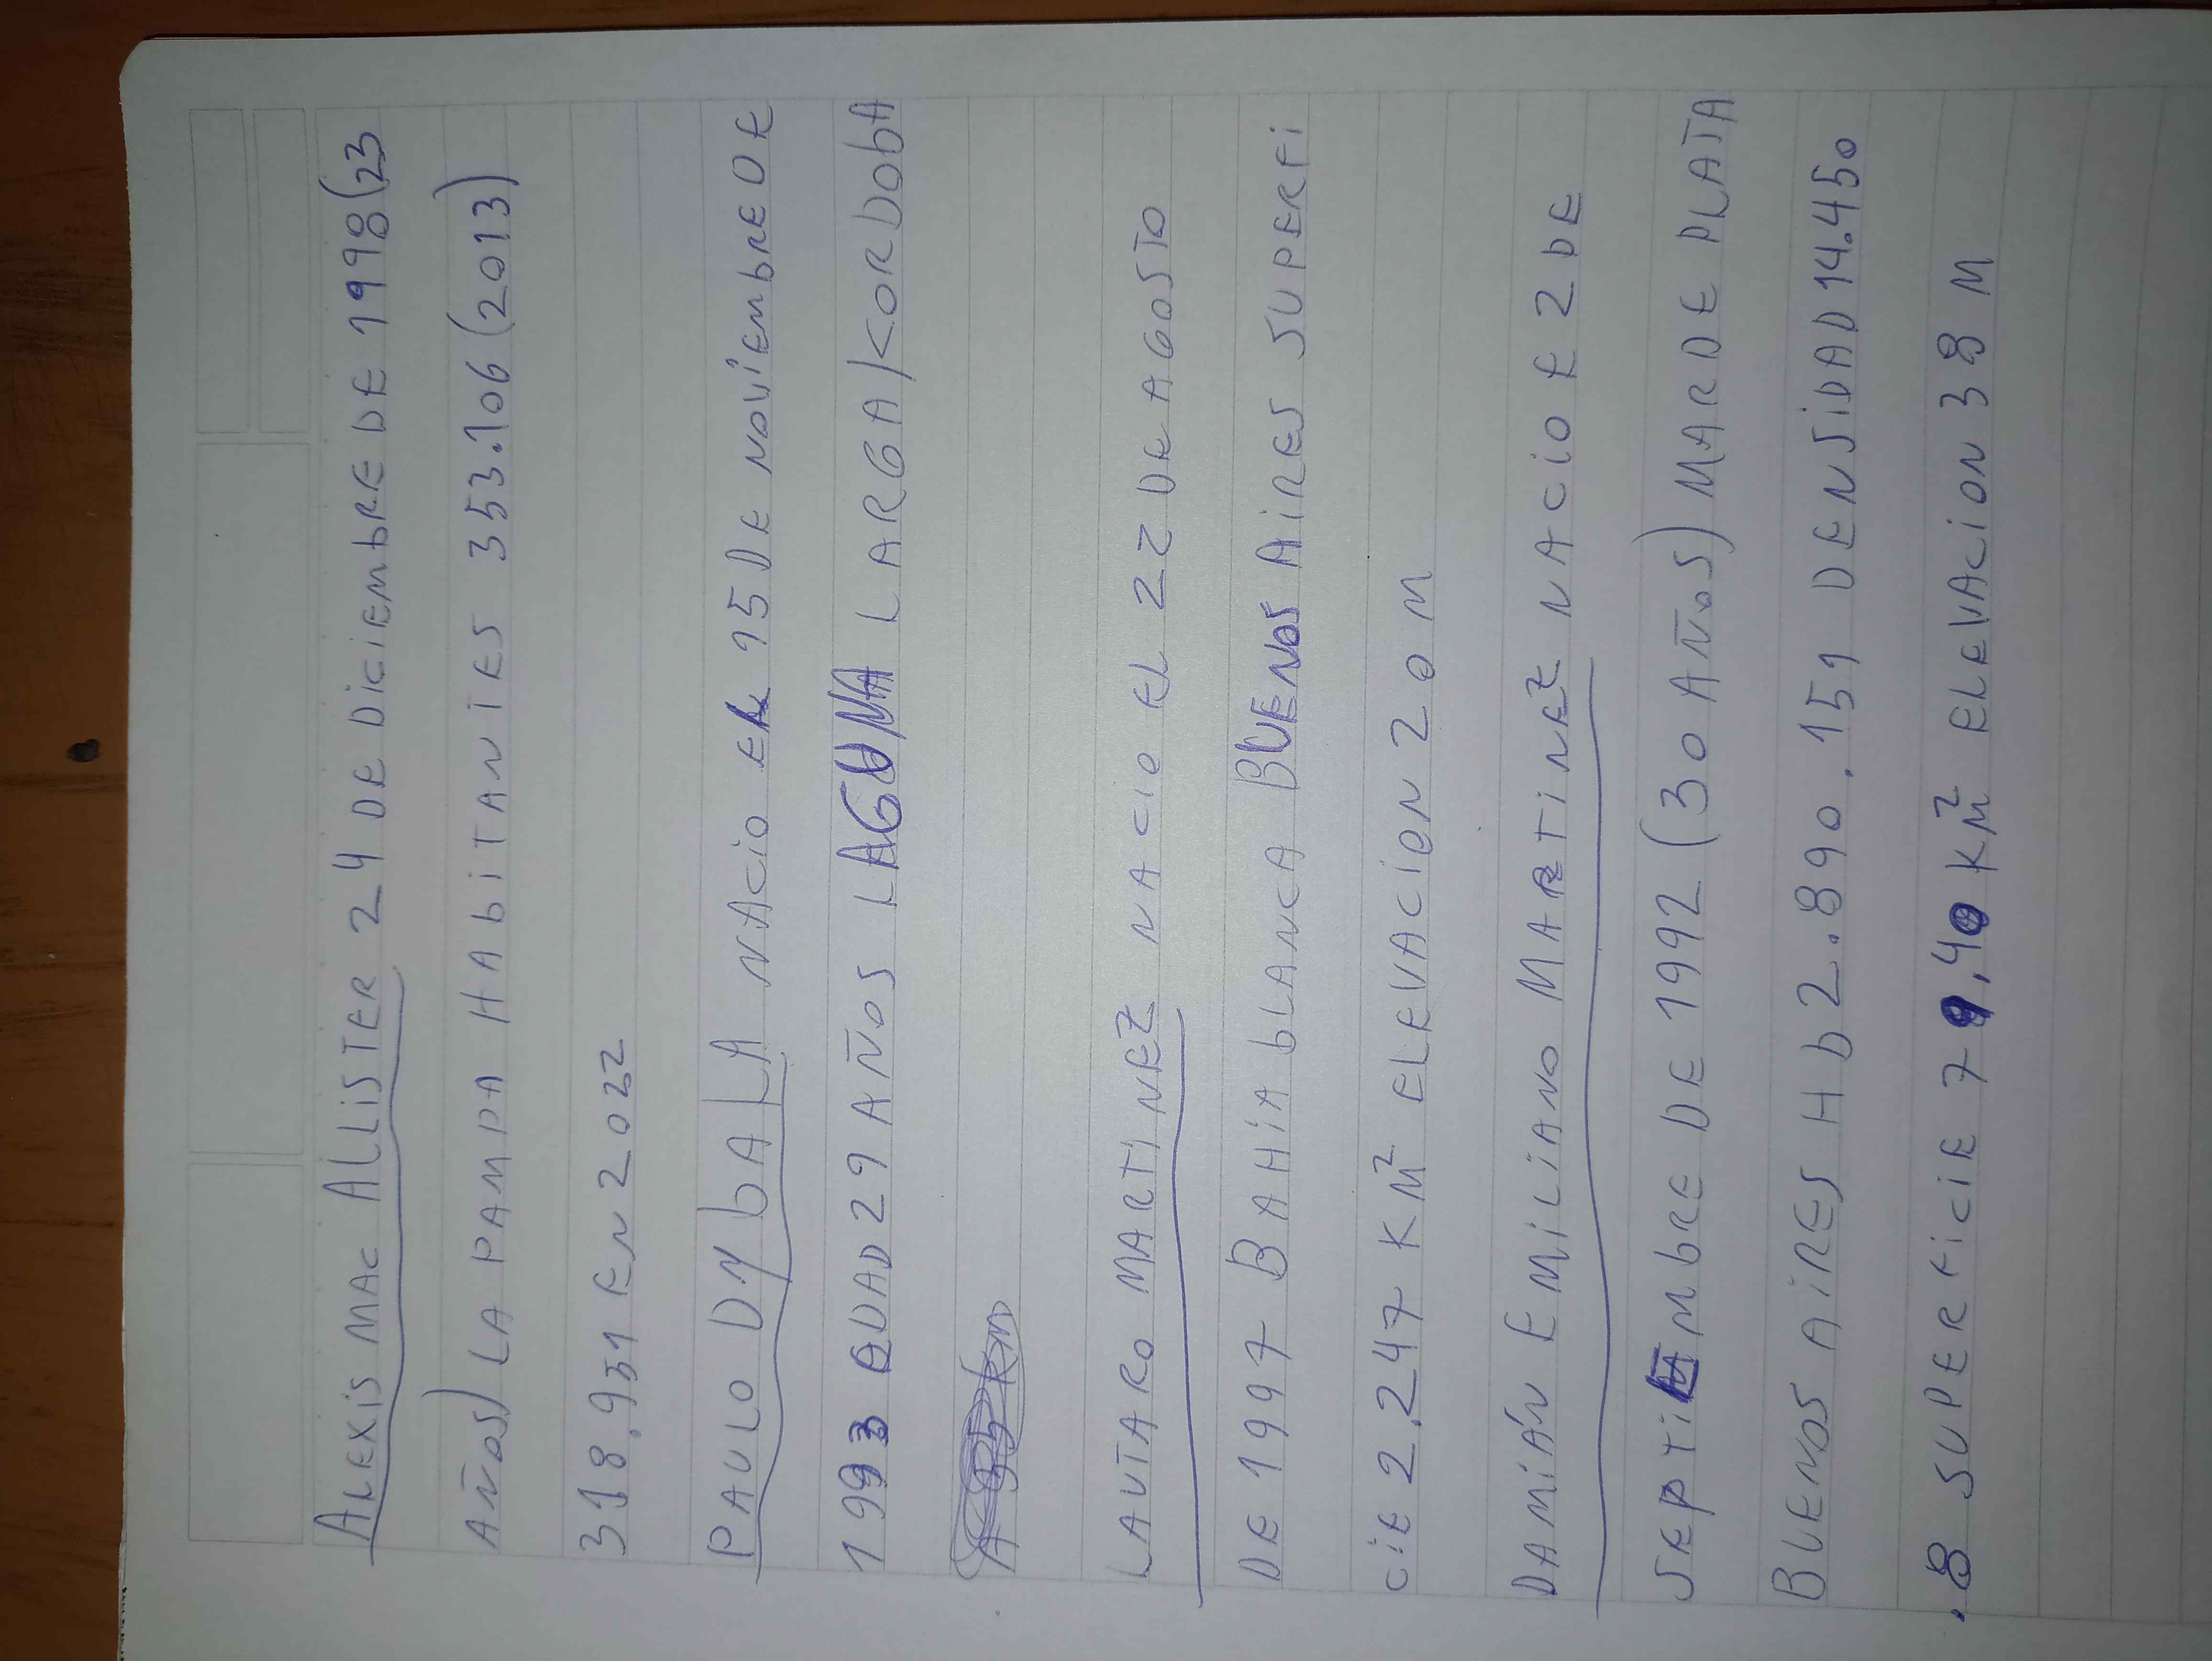 ALEXIS MAC ALLISTER 24 DE DICIEMBRE DE 1998(23
AÑOS) LA PAMPA HABITANTES 353.106(2013)
318.951 EN 2022
PAULO DYBALA NACIO EL 15 DE NOVIEMBRE DE
1993 EDAD 29 AÑOS LAGUNA LARGA/KORDOBA
LAUTARO MARTINEZ NACIO EL 22 DE AGOSTO
DE 1997 BAHIA BLANCA BUENOS AIRES SUPERFI
CIE 2.247 KM² ELEVACION 20 M
DAMIÁN EMILIANO MARTINEZ NACIO E 2 DE
SEPTIEMBRE DE 1992 (30 AÑOS) MAR DE PLATA
BUENOS AIRES Hb 2.890.151 DENSIDAD 14.450
.8 SUPERFICIE 79,40 KM² ELEVACION 38 M